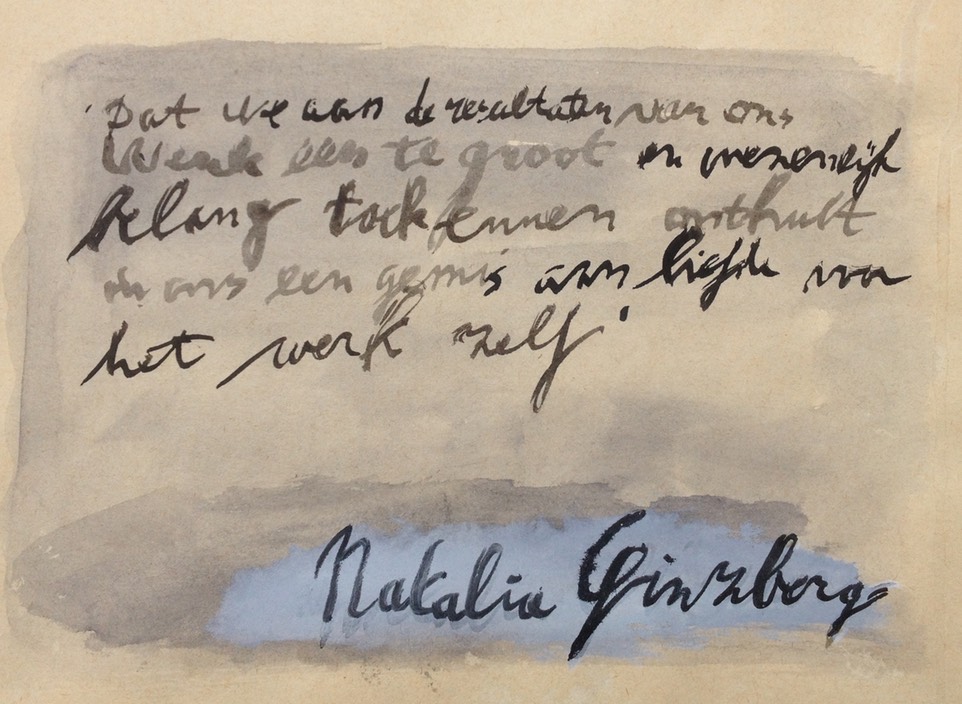 'Dat we aan de resultaten van ons
Werk een te groot en wezenlijk
belang toekennen onthult
in ons een gemis aan liefde voor
het werk zelf'
Natalia Ginzberg